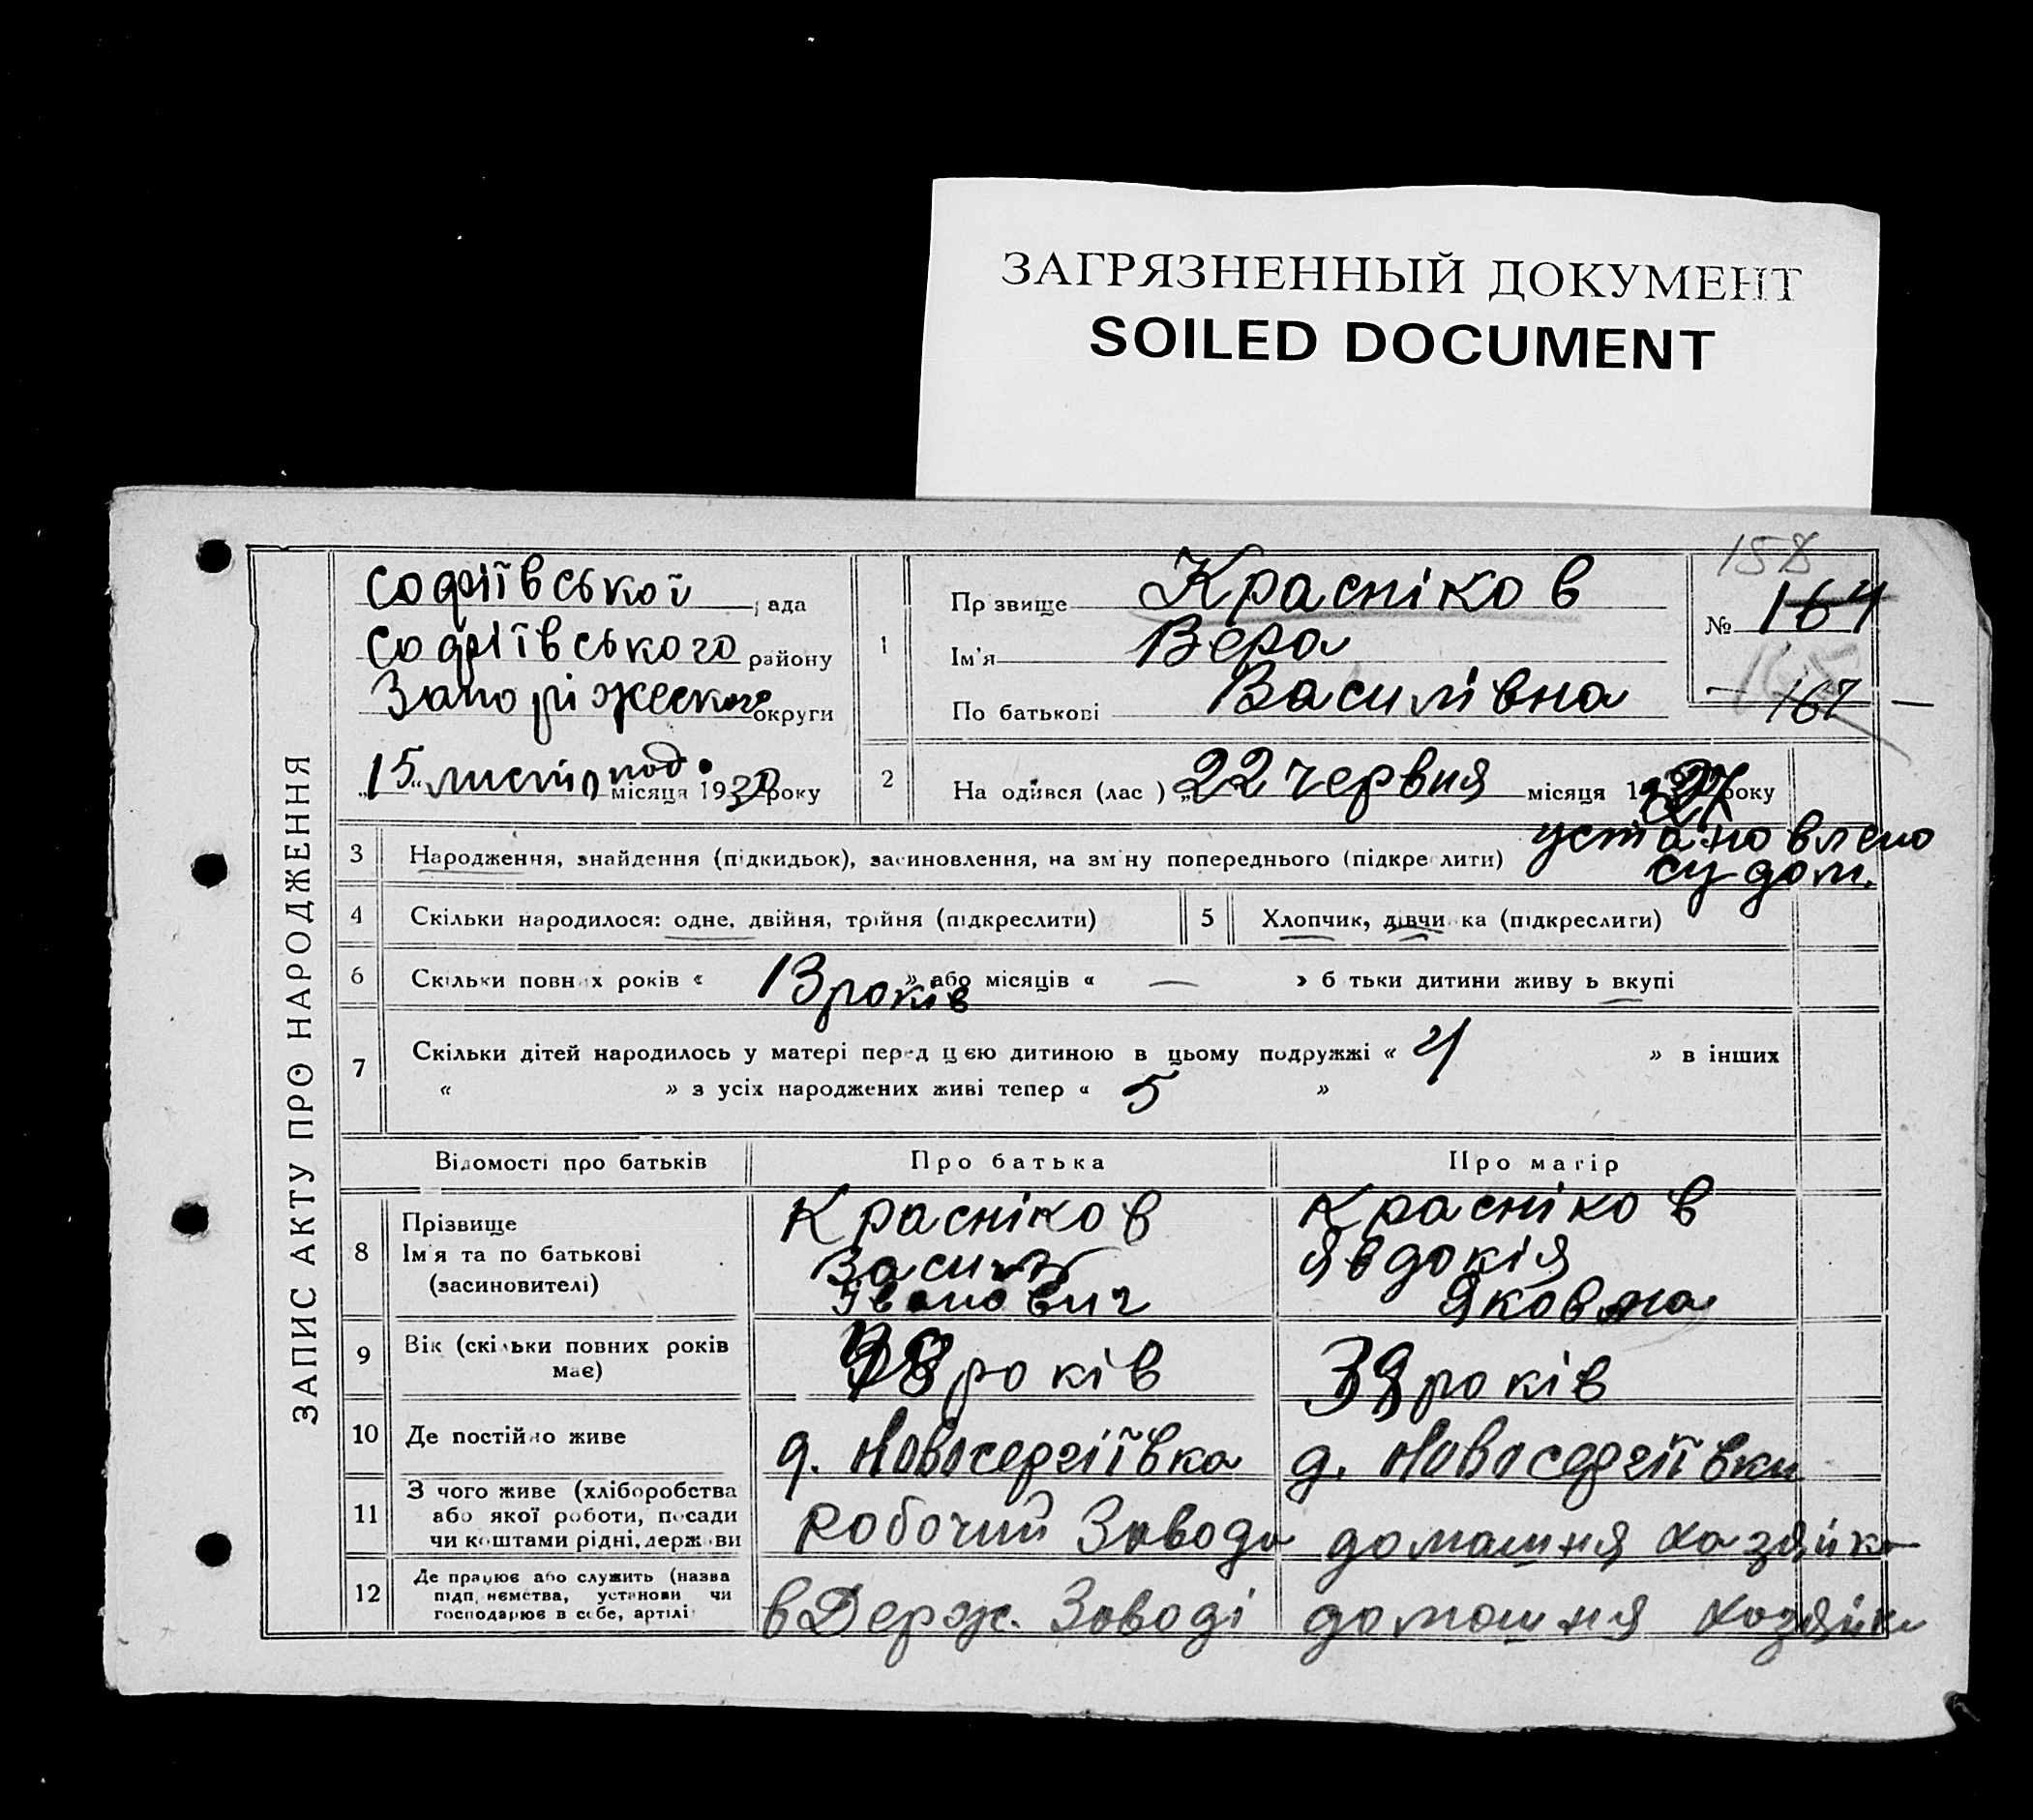 ЗАГРЯЗНЕННЫЙ ДОКУМЕНТ
SOILED DOCUMENT
ЗАПИС АКТУ ПРО НАРОДЖЕННЯ
Софіївської рада
Софіївського району
Запоріжеского округи
„15“ листопад місяця 1930 року
1
Прізвище Красніков
Ім'я Вера
По батькові Василівна
158
№ 164
165
— 167 —
2 На одився (лас ) „22 червня місяця 1927 року
установлено
судом.
3 Народження, знайдення (підкидьок), засиновлення, на зміну попереднього (підкреслити)
4 Скільки народилося: одне, двійня, трійня (підкреслити)
5 Хлопчик, дівчинка (підкреслити)
6 Скільки повних років « 13 років » або місяців « — » батьки дитини живуть вкупі
7 Скільки дітей народилось у матері перед цією дитиною в цьому подружжі « 4 » в інших
« » з усіх народжених живі тепер « 5 »
Відомості про батьків Про батька Про матір
8 Прізвище
Ім'я та по батькові
(засиновителі)
Красніков
Василь
Іванович
Красніков
Явдокія
Яковлна
9 Вік (скільки повних років
має)
років
39 років
10 Де постійно живе д. Новосергіївка д. Новосергіївки
11 З чого живе (хліборобства
або якої роботи, посади
чи коштами рідні, держави
Робочий Завода домашня хазяйка
12 Де працює або служить (назва
підприємства, установи чи
господарює в себе, артілі
в Держ. Заводі домашня хозяйки